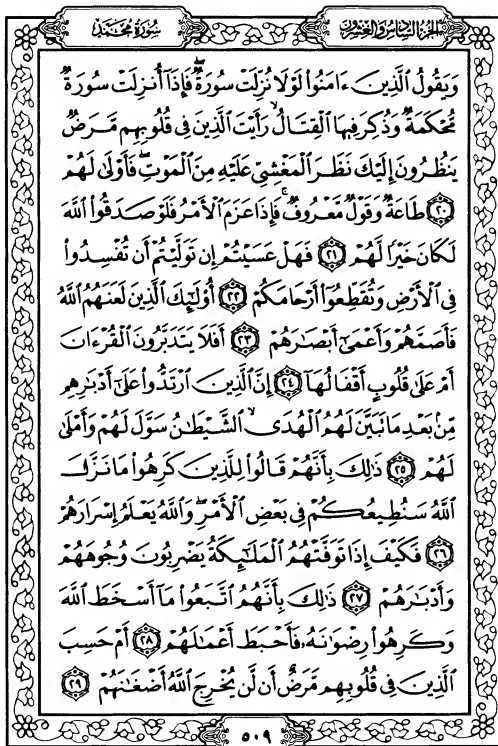 سُورَةُ مُحَمَّد
الجُزْءُ السَّادِسُ وَالعِشْرُونَ
وَيَقُولُ ٱلَّذِينَ ءَامَنُواْ لَوْلَا نُزِّلَتْ سُورَةٌۖ فَإِذَآ أُنزِلَتْ سُورَةٌ
مُّحْكَمَةٌ وَذُكِرَ فِيهَا ٱلْقِتَالُۙ رَأَيْتَ ٱلَّذِينَ فِى قُلُوبِهِم مَّرَضٌ
يَنظُرُونَ إِلَيْكَ نَظَرَ ٱلْمَغْشِىِّ عَلَيْهِ مِنَ ٱلْمَوْتِۖ فَأَوْلَىٰ لَهُمْ
﴿٢٠﴾ طَاعَةٌ وَقَوْلٌ مَّعْرُوفٌۚ فَإِذَا عَزَمَ ٱلْأَمْرُ فَلَوْ صَدَقُواْ ٱللَّهَ
لَكَانَ خَيْرًا لَّهُمْ ﴿٢١﴾ فَهَلْ عَسَيْتُمْ إِن تَوَلَّيْتُمْ أَن تُفْسِدُواْ
فِى ٱلْأَرْضِ وَتُقَطِّعُوٓاْ أَرْحَامَكُمْ ﴿٢٢﴾ أُوْلَٰٓئِكَ ٱلَّذِينَ لَعَنَهُمُ ٱللَّهُ
فَأَصَمَّهُمْ وَأَعْمَىٰٓ أَبْصَٰرَهُمْ ﴿٢٣﴾ أَفَلَا يَتَدَبَّرُونَ ٱلْقُرْءَانَ
أَمْ عَلَىٰ قُلُوبٍ أَقْفَالُهَآ ﴿٢٤﴾ إِنَّ ٱلَّذِينَ ٱرْتَدُّواْ عَلَىٰٓ أَدْبَٰرِهِم
مِّنۢ بَعْدِ مَا تَبَيَّنَ لَهُمُ ٱلْهُدَىۙ ٱلشَّيْطَٰنُ سَوَّلَ لَهُمْ وَأَمْلَىٰ
لَهُمْ ﴿٢٥﴾ ذَٰلِكَ بِأَنَّهُمْ قَالُواْ لِلَّذِينَ كَرِهُواْ مَا نَزَّلَ
ٱللَّهُ سَنُطِيعُكُمْ فِى بَعْضِ ٱلْأَمْرِۖ وَٱللَّهُ يَعْلَمُ إِسْرَارَهُمْ
﴿٢٦﴾ فَكَيْفَ إِذَا تَوَفَّتْهُمُ ٱلْمَلَٰٓئِكَةُ يَضْرِبُونَ وُجُوهَهُمْ
وَأَدْبَٰرَهُمْ ﴿٢٧﴾ ذَٰلِكَ بِأَنَّهُمُ ٱتَّبَعُواْ مَآ أَسْخَطَ ٱللَّهَ
وَكَرِهُواْ رِضْوَٰنَهُۥ فَأَحْبَطَ أَعْمَٰلَهُمْ ﴿٢٨﴾ أَمْ حَسِبَ
ٱلَّذِينَ فِى قُلُوبِهِم مَّرَضٌ أَن لَّن يُخْرِجَ ٱللَّهُ أَضْغَٰنَهُمْ ﴿٢٩﴾
٥٠٩